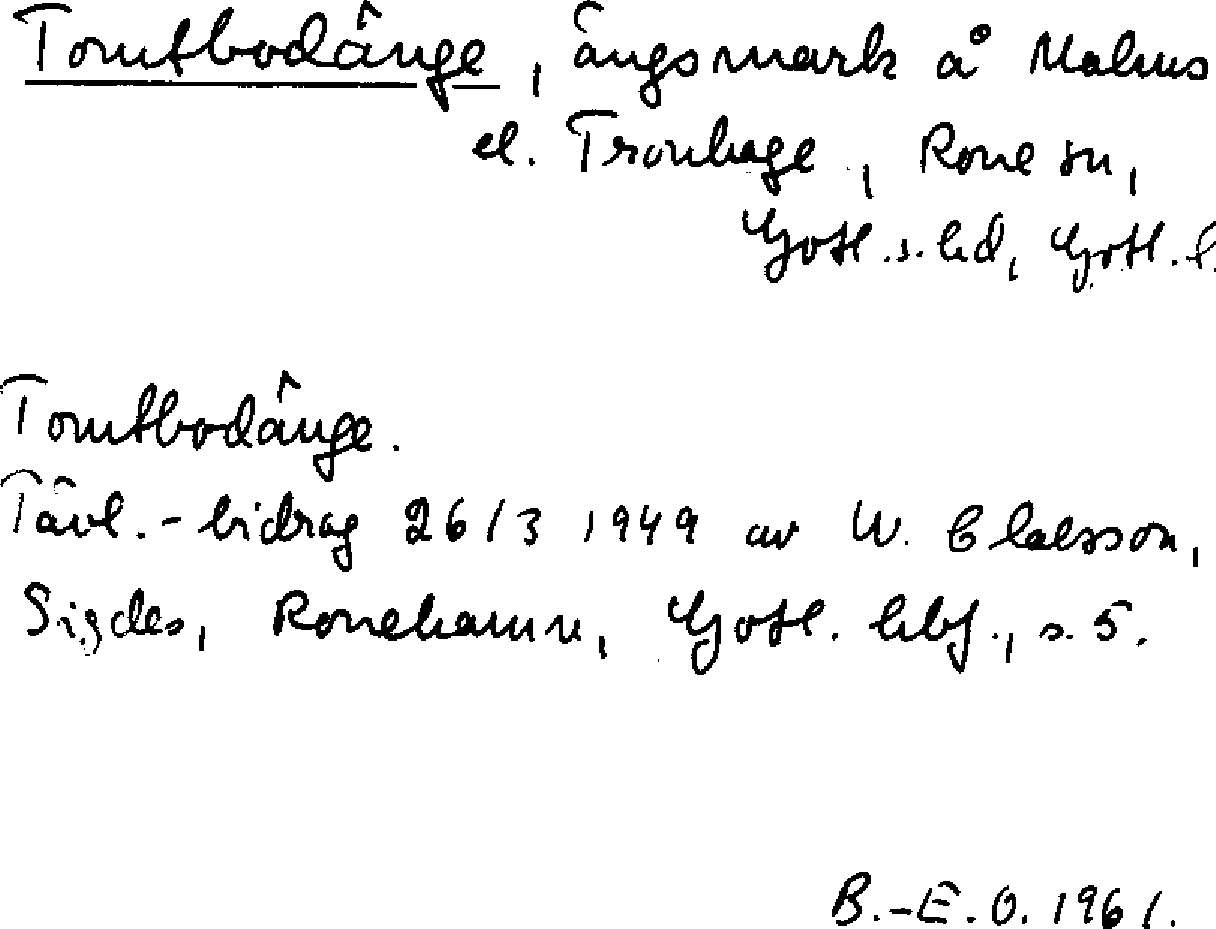 Tomtbodänge, ängsmark å Malms
el. Tronhage, Rone sn,
Gotl. s. hd, Gotl. l.
Tomtbodänge.
Tävl.-bidrag 26/3 1949 av W. Claesson,
Sigdes, Ronehamn, Gotl. hbf., s. 5.
B.-E. O. 1961.